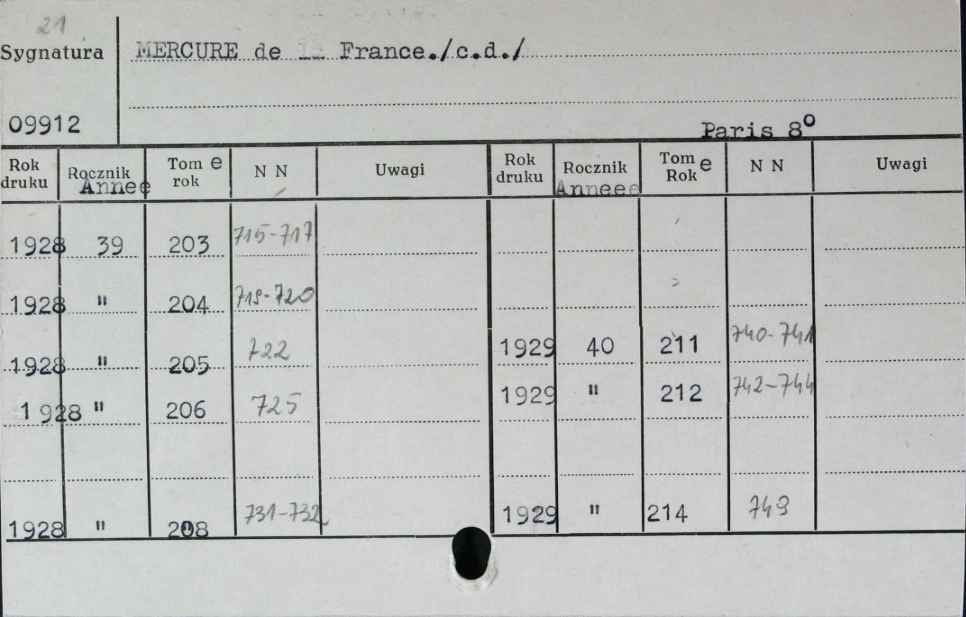 21
Sygnatura MERCURE de la France./c.d./
09912
Paris 8º
Rok druku Rocznik Annee Tom e rok N N Uwagi Rok druku Rocznik Anneee Tom e Rok N N Uwagi
1928 39 203 715-717
1928 " 204 719-720
1928 " 205 722 1929 40 211 740-741
1928 " 206 725 1929 " 212 742-744
1928 " 208 731-732 1929 " 214 749